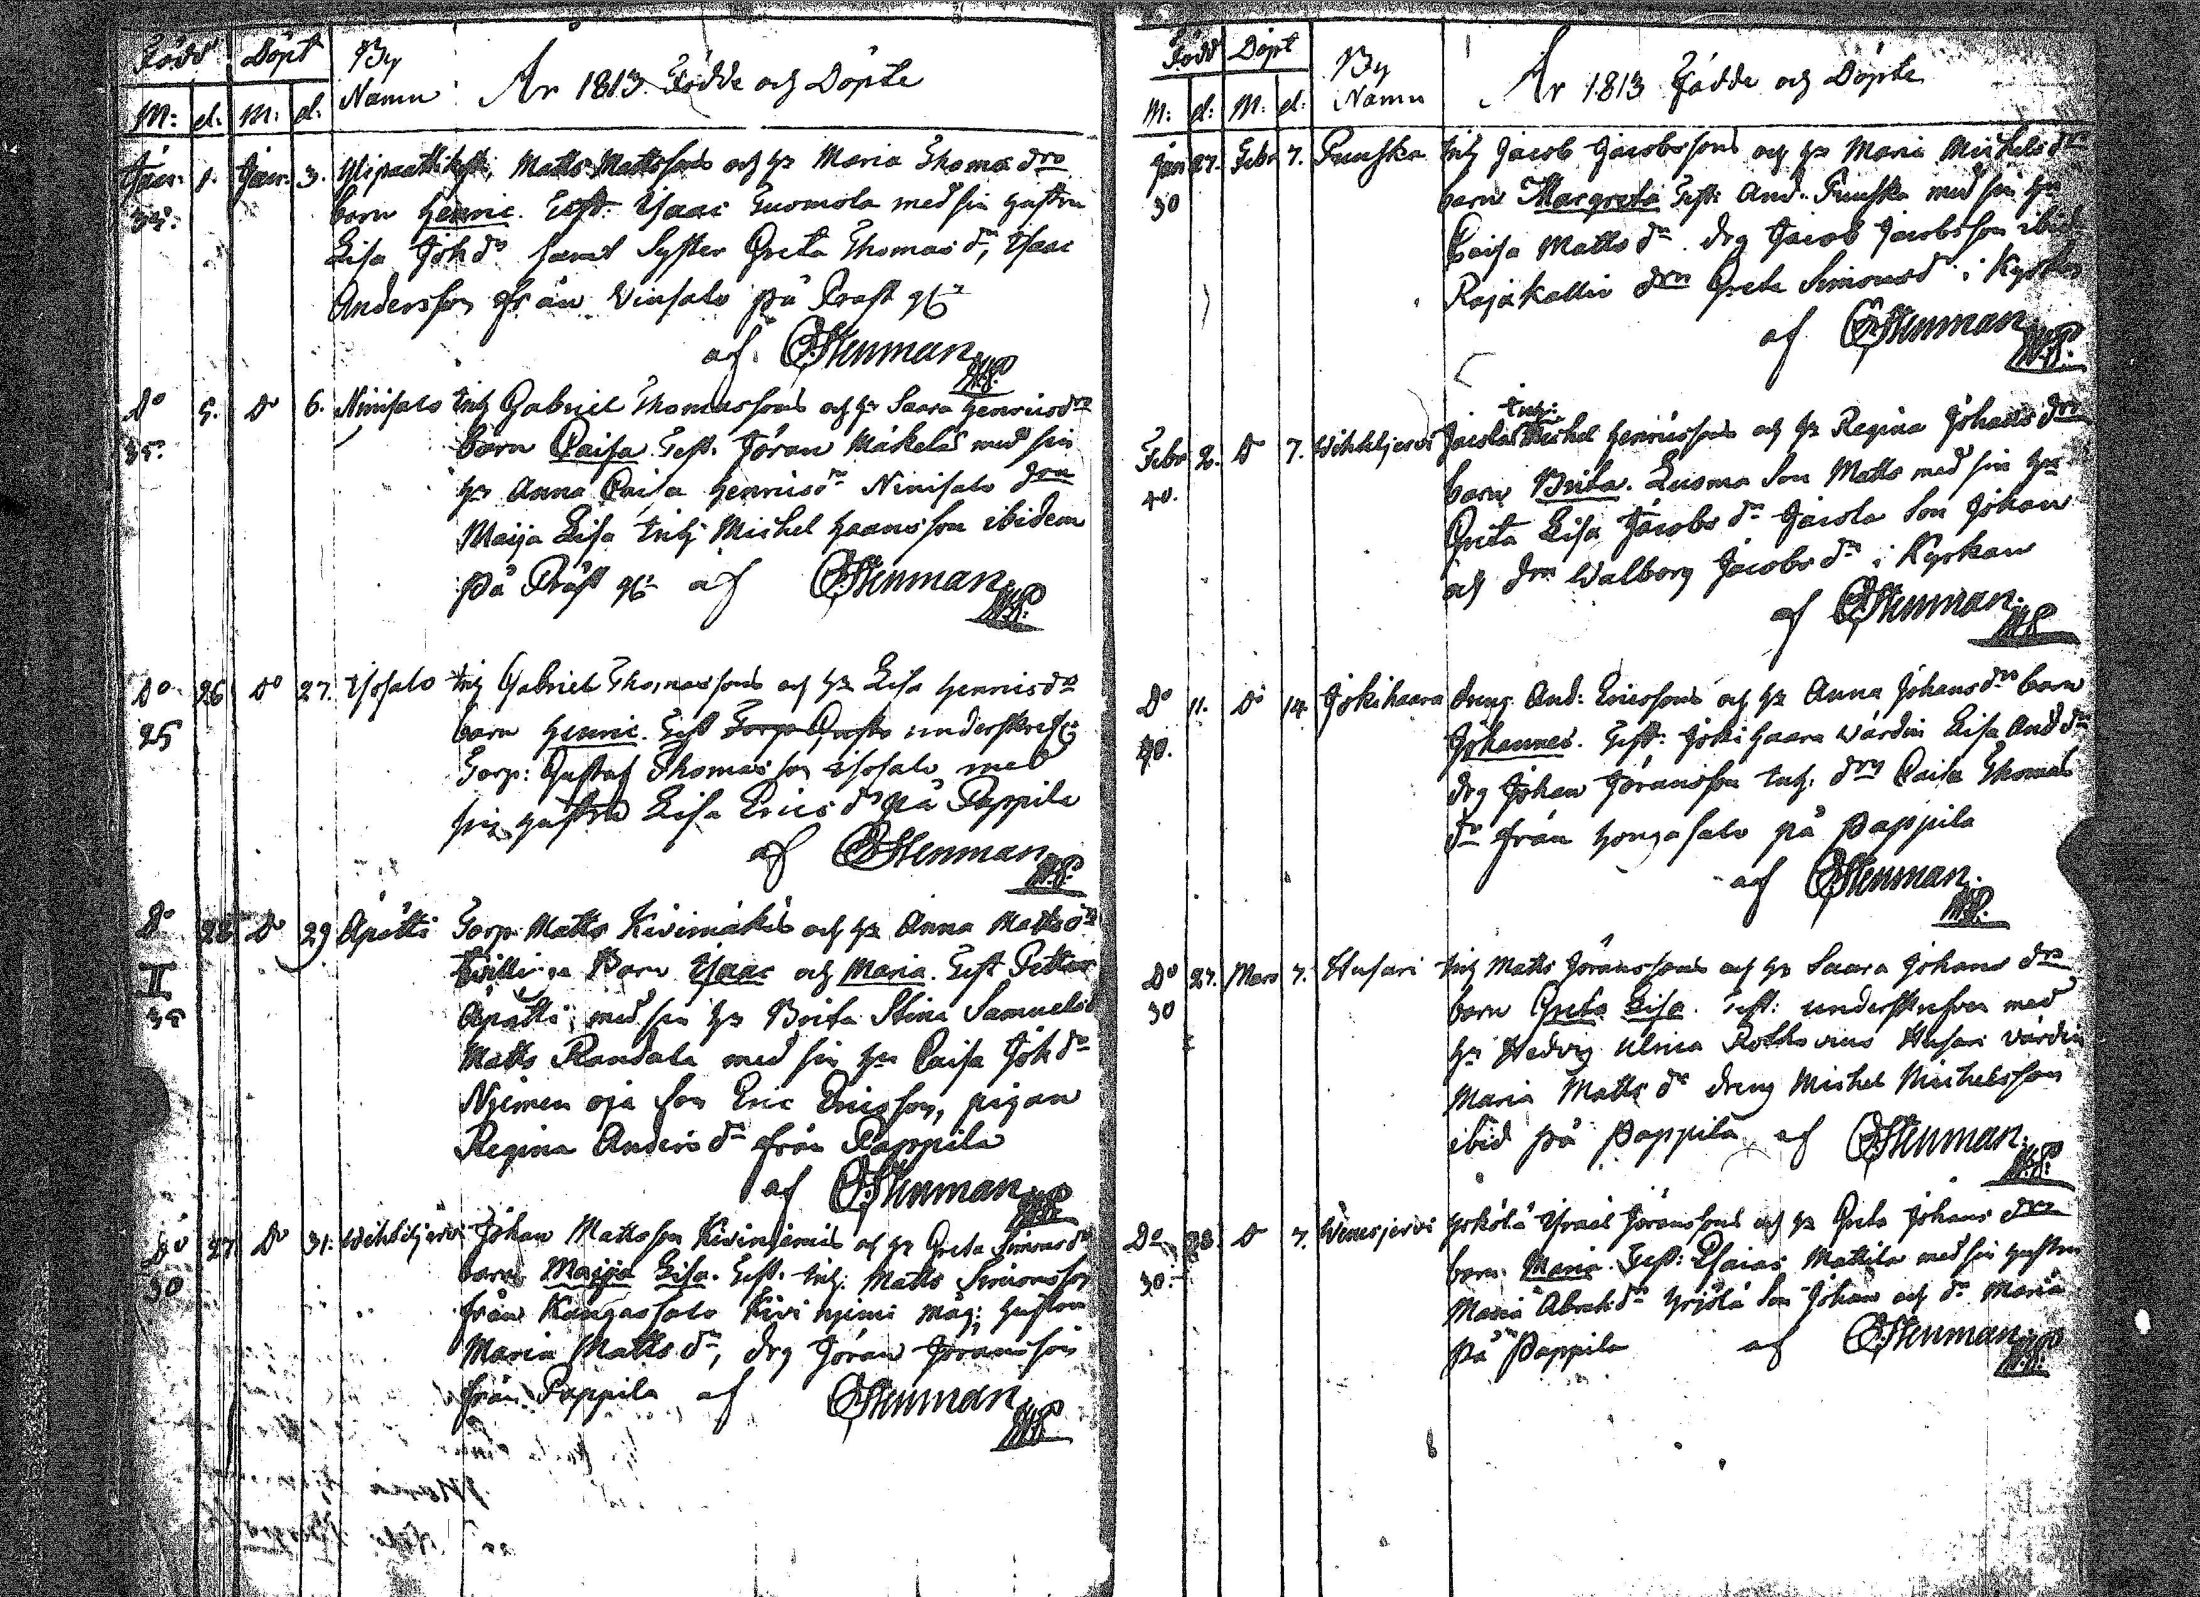 Född Döpt By Namn År 1813. Födde och Döpte
M: d. M: d.
Jan: 1. Jan: 3. Matts Mattssons och h:s Maria Thomæ dro
barn Henric. Test: Isaac Tuomola med sin hustru
Lisa Joh dr samt Syster Greta Thomas dr, Isaac
Andersson från Vinsalo på Prost
af CStenman
Do 5. Do 6. Ninisalo inh Gabriel Thomassons och h:s Saara Henricsdrs
35. barn Caisa. Test. Jöran Mäkelä med sin
h:u Anna Caisa Henricsdr Ninisalo
Maija Lisa inh Michel Hansson ibidem
på Präst af CStenman
Do 26 Do 27. inh Gabriel Thomassons och h:s Lisa Henricsdrs
25 barn Henric. Test
Torp: Gustaf Thomasson med
sin hustru Lisa Erics dr på Pappila
af CStenman
Do 28 Do 29 Apätti Torp. Matts Kivimäkis och h:s Anna Matts drs
II Barn Isaac och Maria. Test Petter
35 Apätti med sin h:u Brita Stina Samuels d
Matts Randala med sin h:u Caisa Joh dr
Njemen oja Son Eric Ericsson, pigan
Regina Anders dr från Pappila
af CStenman
Do 27 Do 31. Johan Mattsson och h:s Greta Simonsdr
30 barn Maija Lisa. Test. inh: Matts Simonsson
från Kangassalo Kivi njemi måg: hustru
Maria Matts dr, drg Jöran Joransson
från Pappila af CStenman
Född Döpt By Namn År 1813 Födde och Döpte
M: d: M: d:
Jan 27. Febr 7. Punska inh Jacob Jacobssons och h:s Maria Michelsdrs
30 barn Margreta Test: And: Punska med sin h:u
Caisa Matts dr. drg Jacob Jacobsson ibid
Rajakallio Greta Simonsd i Kyrkan
af CStenman
inh:
Febr 2. Do 7. Michel Henricssons och h:s Regina Johans drs
40. barn Brita. Luoma Son Matts med sin h:u
Greta Lisa Jacobs dr Jacola Son Johan
och Walborg Jacobs dr i Kyrkan
af CStenman
Do 11. Do 14 Jokihaara dreng And: Ericssons och h:s Anna Johans drs barn
40. Johannes. Test: Joki haara Wärdin Lisa And dr
drg Johan Jöransson inh: Caisa Thomas
dr från Hongasalo på Pappila
af CStenman
Do 27. Mars 7. Husari inh Matts Jöranssons och h:s Saara Johans drs
30 barn Greta Lisa. Test: underskrefven med
h:u Hedvig Ulrica Rothovius Husari värdin
Maria Matts dr dreng Michel Michelsson
ibid på Pappila af CStenman
Do 28. Do 7. Israel Jöranssons och h:s Greta Johans drs
30. barn Maria. Test: Esaias Mattila med sin hustru
Maria Abrah: dr Yrjölä Son Johan och dr Maria
på Pappila af CStenman